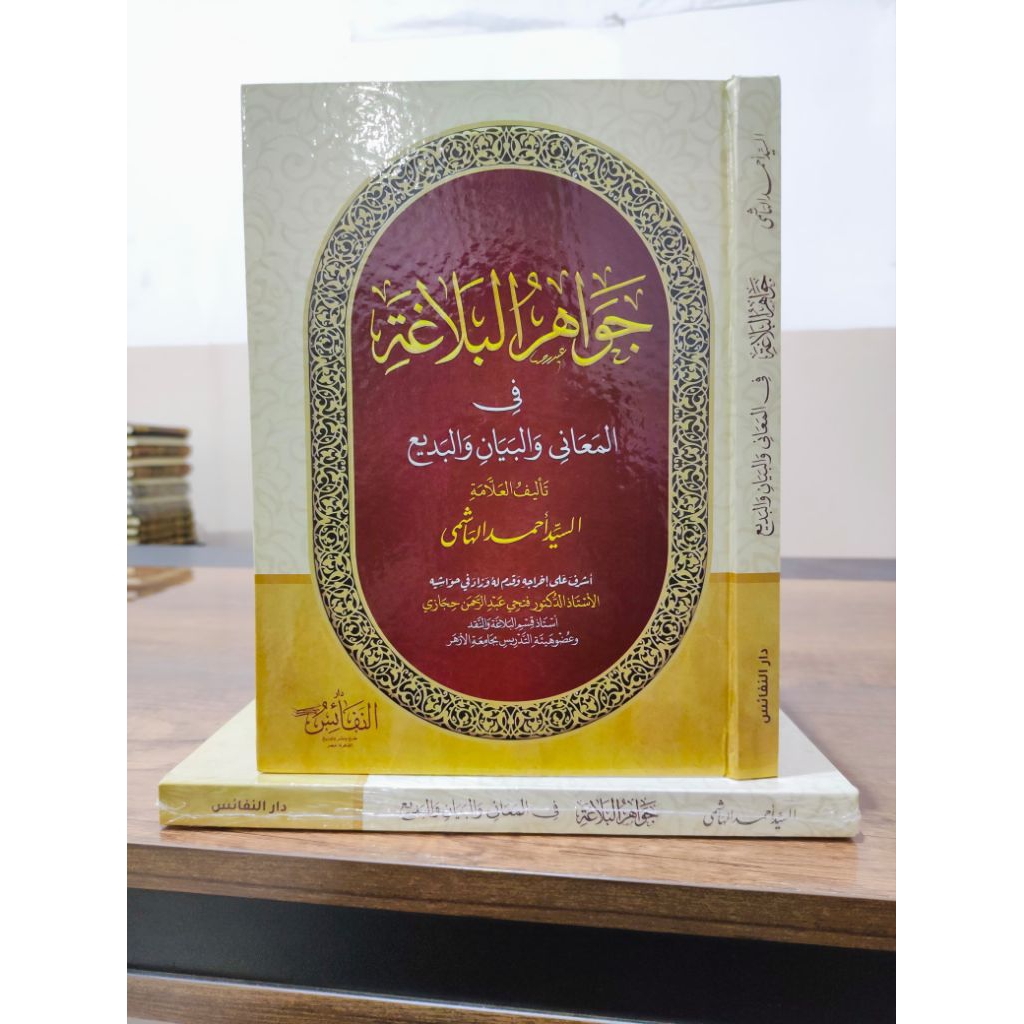 جَوَاهِرُ البَلَاغَةِ
فِي
المَعَانِي وَالبَيَانِ وَالبَدِيعِ
تَأليفُ العَلَّامَةِ
السيِّد أحمد الهاشمي
أشرف على إخراجه وقدم له وزاد في حواشيه
الأستاذ الدكتور فتحي عبد الرحمن حجازي
أستاذ قسم البلاغة والنقد
وعضو هيئة التدريس بجامعة الأزهر
دار
النَفَائِسُ
السيِّد أحمد الهاشمي
جَوَاهِرُ البَلَاغَةِ
في المَعَانِي وَالبَيَانِ وَالبَدِيعِ
دار النفائس
السيِّد أحمد الهاشمي جَوَاهِرُ البَلَاغَةِ في المَعَانِي وَالبَيَانِ وَالبَدِيعِ دار النفائس